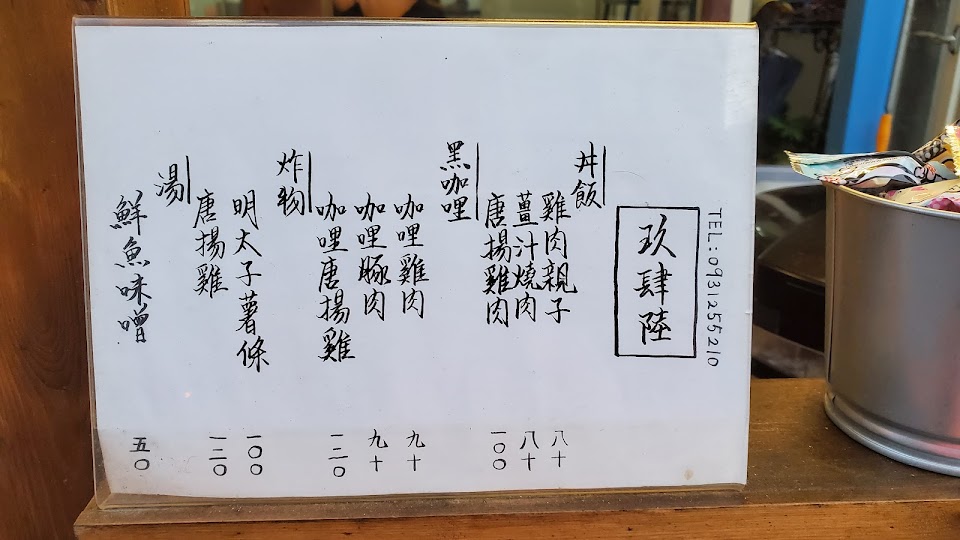 TEL:0931255210
玖肆陸
丼飯
雞肉親子 八十
薑汁燒肉 八十
唐揚雞肉 一〇〇
黑咖哩
咖哩雞肉 九十
咖哩豚肉 九十
咖哩唐揚雞 一二〇
炸物
明太子薯條 一〇〇
唐揚雞 一二〇
湯
鮮魚味噌 五〇